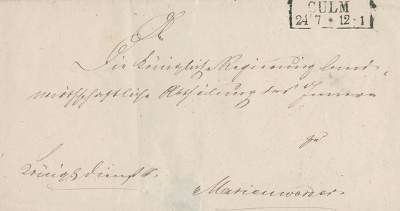 CULM
24 7 * 12-1
An
Die Königliche Regierung land-
wirthschaftliche Abtheilung des Innern
zu
Königl. Dienst S.
Marienwerder.